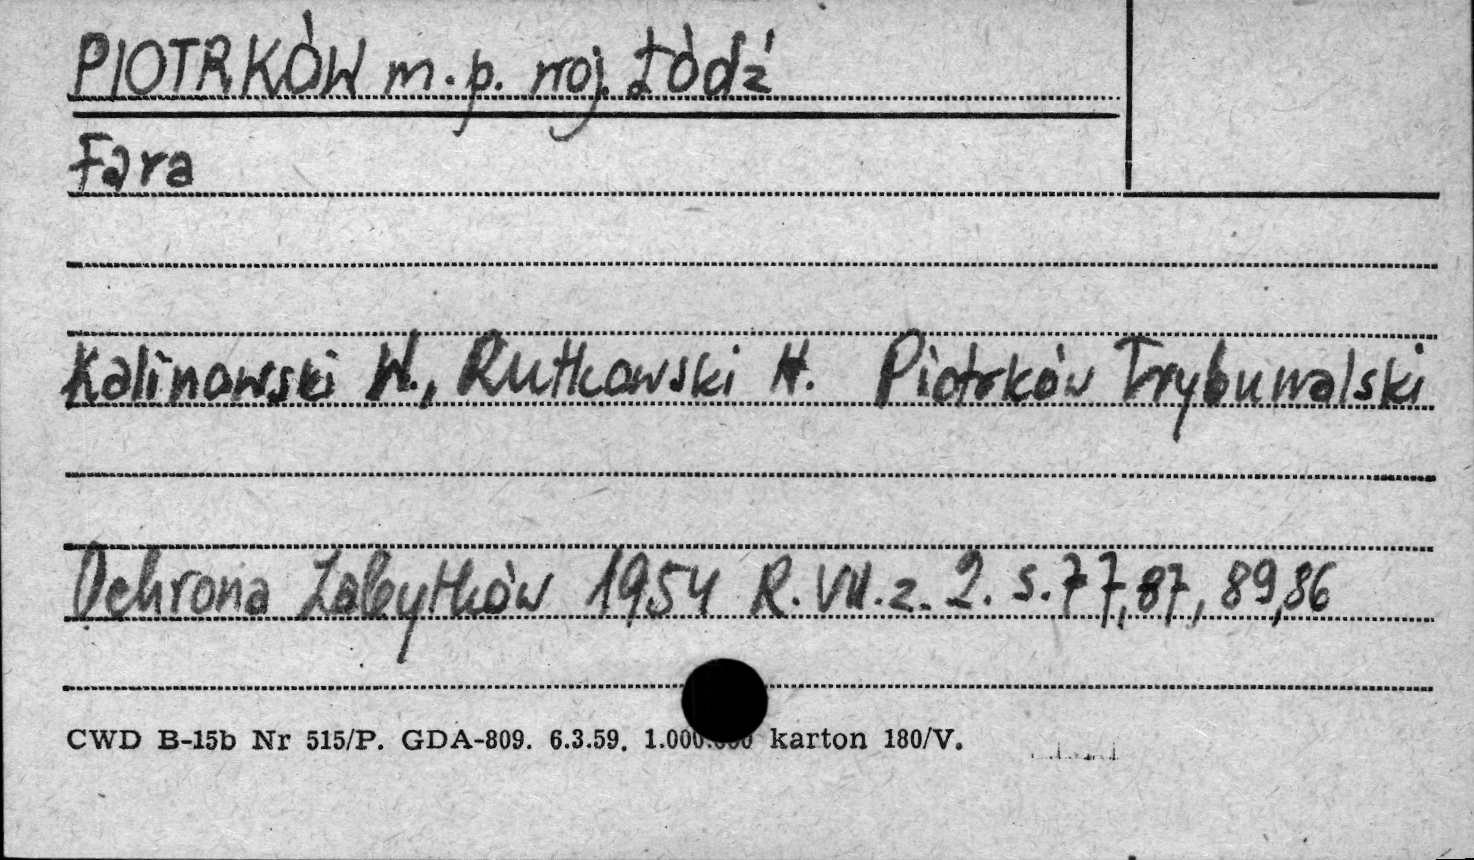 PIOTRKÓW m. p. woj. Łódź
Fara
Kalinowski W., Rutkowski H. Piotrków Trybunalski
Ochrona Zabytków 1954 R. VII. z. 2. s. 77, 87, 89, 86
CWD B-15b Nr 515/P. GDA-809. 6.3.59. 1.000.000 karton 180/V.